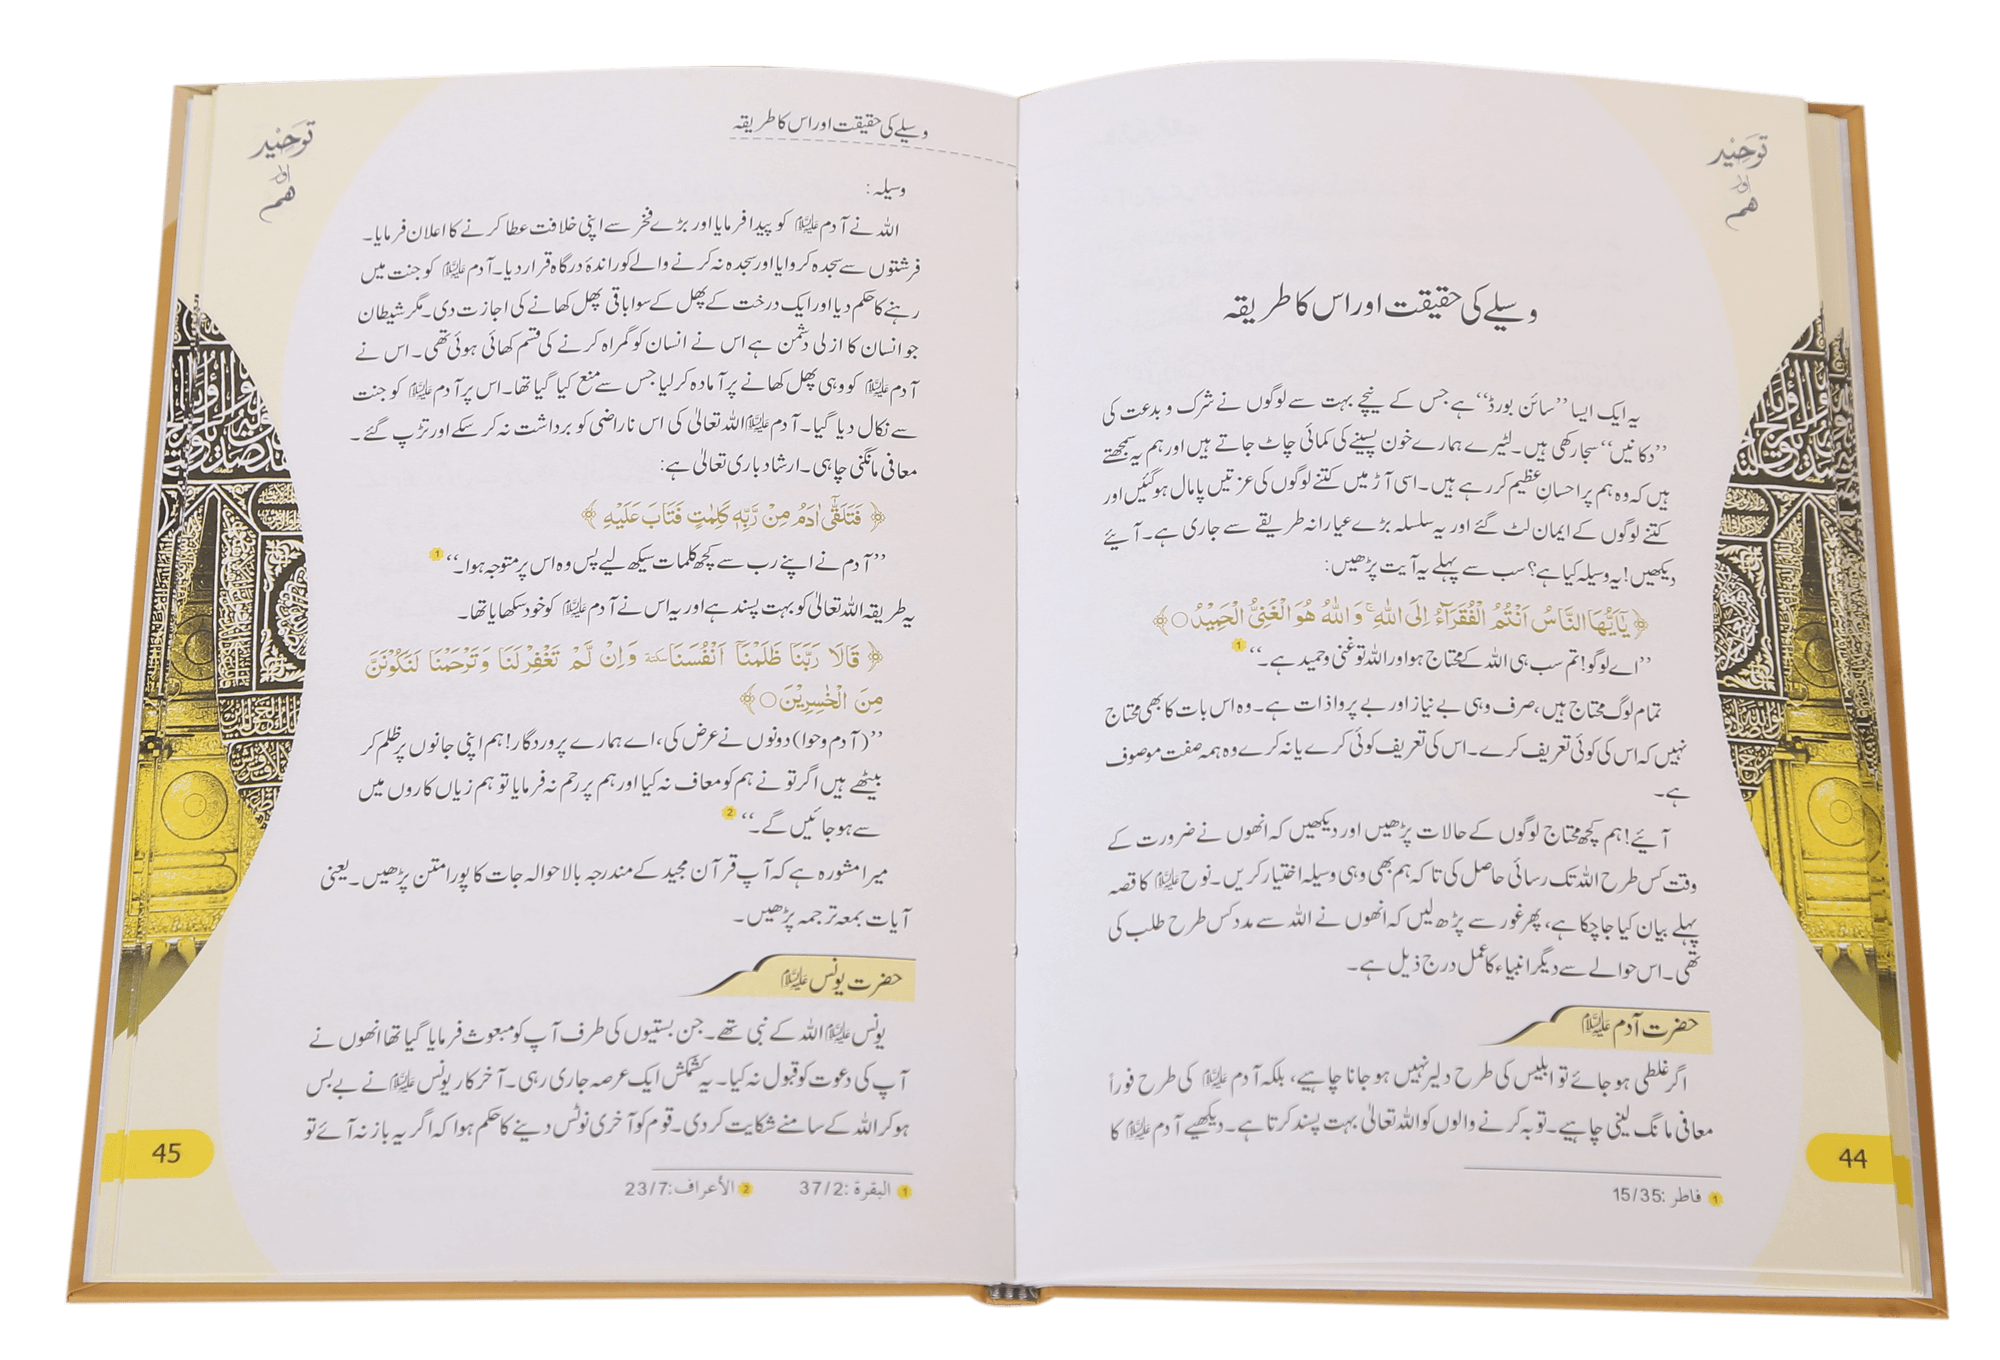 توحید
اور
ہم
وسیلے کی حقیقت اور اس کا طریقہ
یہ ایک ایسا ’’سائن بورڈ‘‘ ہے جس کے نیچے بہت سے لوگوں نے شرک و بدعت کی
’’دکانیں‘‘ سجا رکھی ہیں۔ لٹیرے ہمارے خون پسینے کی کمائی چاٹ جاتے ہیں اور ہم یہ سمجھتے
ہیں کہ وہ ہم پر احسانِ عظیم کر رہے ہیں۔ اسی آڑ میں کتنے لوگوں کی عزتیں پامال ہو گئیں اور
کتنے لوگوں کے ایمان لٹ گئے اور یہ سلسلہ بڑے عیارانہ طریقے سے جاری ہے۔ آیئے
دیکھیں! یہ وسیلہ کیا ہے؟ سب سے پہلے یہ آیت پڑھیں:
﴿ يٰۤاَيُّهَا النَّاسُ اَنْتُمُ الْفُقَرَآءُ اِلَى اللّٰهِ ۚ وَ اللّٰهُ هُوَ الْغَنِيُّ الْحَمِيْدُ○ ﴾
’’اے لوگو! تم سب ہی اللہ کے محتاج ہو اور اللہ تو غنی و حمید ہے۔‘‘ 1
تمام لوگ محتاج ہیں، صرف وہی بے نیاز اور بے پروا ذات ہے۔ وہ اس بات کا بھی محتاج
نہیں کہ اس کی کوئی تعریف کرے۔ اس کی تعریف کوئی کرے یا نہ کرے وہ ہمہ صفت موصوف
ہے۔
آیئے! ہم کچھ محتاج لوگوں کے حالات پڑھیں اور دیکھیں کہ انھوں نے ضرورت کے
وقت کس طرح اللہ تک رسائی حاصل کی تاکہ ہم بھی وہی وسیلہ اختیار کریں۔ نوح علیہ السلام کا قصہ
پہلے بیان کیا جا چکا ہے، پھر غور سے پڑھ لیں کہ انھوں نے اللہ سے مدد کس طرح طلب کی
تھی۔ اس حوالے سے دیگر انبیاء کا عمل درج ذیل ہے۔
حضرت آدم علیہ السلام
اگر غلطی ہو جائے تو ابلیس کی طرح دلیر نہیں ہو جانا چاہیے، بلکہ آدم علیہ السلام کی طرح فوراً
معافی مانگ لینی چاہیے۔ توبہ کرنے والوں کو اللہ تعالیٰ بہت پسند کرتا ہے۔ دیکھیے آدم علیہ السلام کا
1 فاطر :15/35
44
وسیلے کی حقیقت اور اس کا طریقہ
توحید
اور
ہم
وسیلہ:
اللہ نے آدم علیہ السلام کو پیدا فرمایا اور بڑے فخر سے اپنی خلافت عطا کرنے کا اعلان فرمایا۔
فرشتوں سے سجدہ کروایا اور سجدہ نہ کرنے والے کو راندۂ درگاہ قرار دیا۔ آدم علیہ السلام کو جنت میں
رہنے کا حکم دیا اور ایک درخت کے پھل کے سوا باقی پھل کھانے کی اجازت دی۔ مگر شیطان
جو انسان کا ازلی دشمن ہے اس نے انسان کو گمراہ کرنے کی قسم کھائی ہوئی تھی۔ اس نے
آدم علیہ السلام کو وہی پھل کھانے پر آمادہ کر لیا جس سے منع کیا گیا تھا۔ اس پر آدم علیہ السلام کو جنت
سے نکال دیا گیا۔ آدم علیہ السلام اللہ تعالیٰ کی اس ناراضی کو برداشت نہ کر سکے اور تڑپ گئے۔
معافی مانگنی چاہی۔ ارشاد باری تعالیٰ ہے:
﴿ فَتَلَقّٰۤى اٰدَمُ مِنْ رَّبِّهٖ كَلِمٰتٍ فَتَابَ عَلَيْهِ ﴾
’’آدم نے اپنے رب سے کچھ کلمات سیکھ لیے پس وہ اس پر متوجہ ہوا۔‘‘ 1
یہ طریقہ اللہ تعالیٰ کو بہت پسند ہے اور یہ اس نے آدم علیہ السلام کو خود سکھایا تھا۔
﴿ قَالَا رَبَّنَا ظَلَمْنَاۤ اَنْفُسَنَا سكتة وَ اِنْ لَّمْ تَغْفِرْ لَنَا وَ تَرْحَمْنَا لَنَكُوْنَنَّ
مِنَ الْخٰسِرِيْنَ○ ﴾
’’(آدم و حوا) دونوں نے عرض کی، اے ہمارے پروردگار! ہم اپنی جانوں پر ظلم کر
بیٹھے ہیں اگر تو نے ہم کو معاف نہ کیا اور ہم پر رحم نہ فرمایا تو ہم زیاں کاروں میں
سے ہو جائیں گے۔‘‘ 2
میرا مشورہ ہے کہ آپ قرآن مجید کے مندرجہ بالا حوالہ جات کا پورا متن پڑھیں۔ یعنی
آیات بمعہ ترجمہ پڑھیں۔
حضرت یونس علیہ السلام
یونس علیہ السلام اللہ کے نبی تھے۔ جن بستیوں کی طرف آپ کو مبعوث فرمایا گیا تھا انھوں نے
آپ کی دعوت کو قبول نہ کیا۔ یہ کشمکش ایک عرصہ جاری رہی۔ آخر کار یونس علیہ السلام نے بے بس
ہو کر اللہ کے سامنے شکایت کر دی۔ قوم کو آخری نوٹس دینے کا حکم ہوا کہ اگر یہ باز نہ آئے تو
1 البقرة :37/2 2 الأعراف:23/7
45